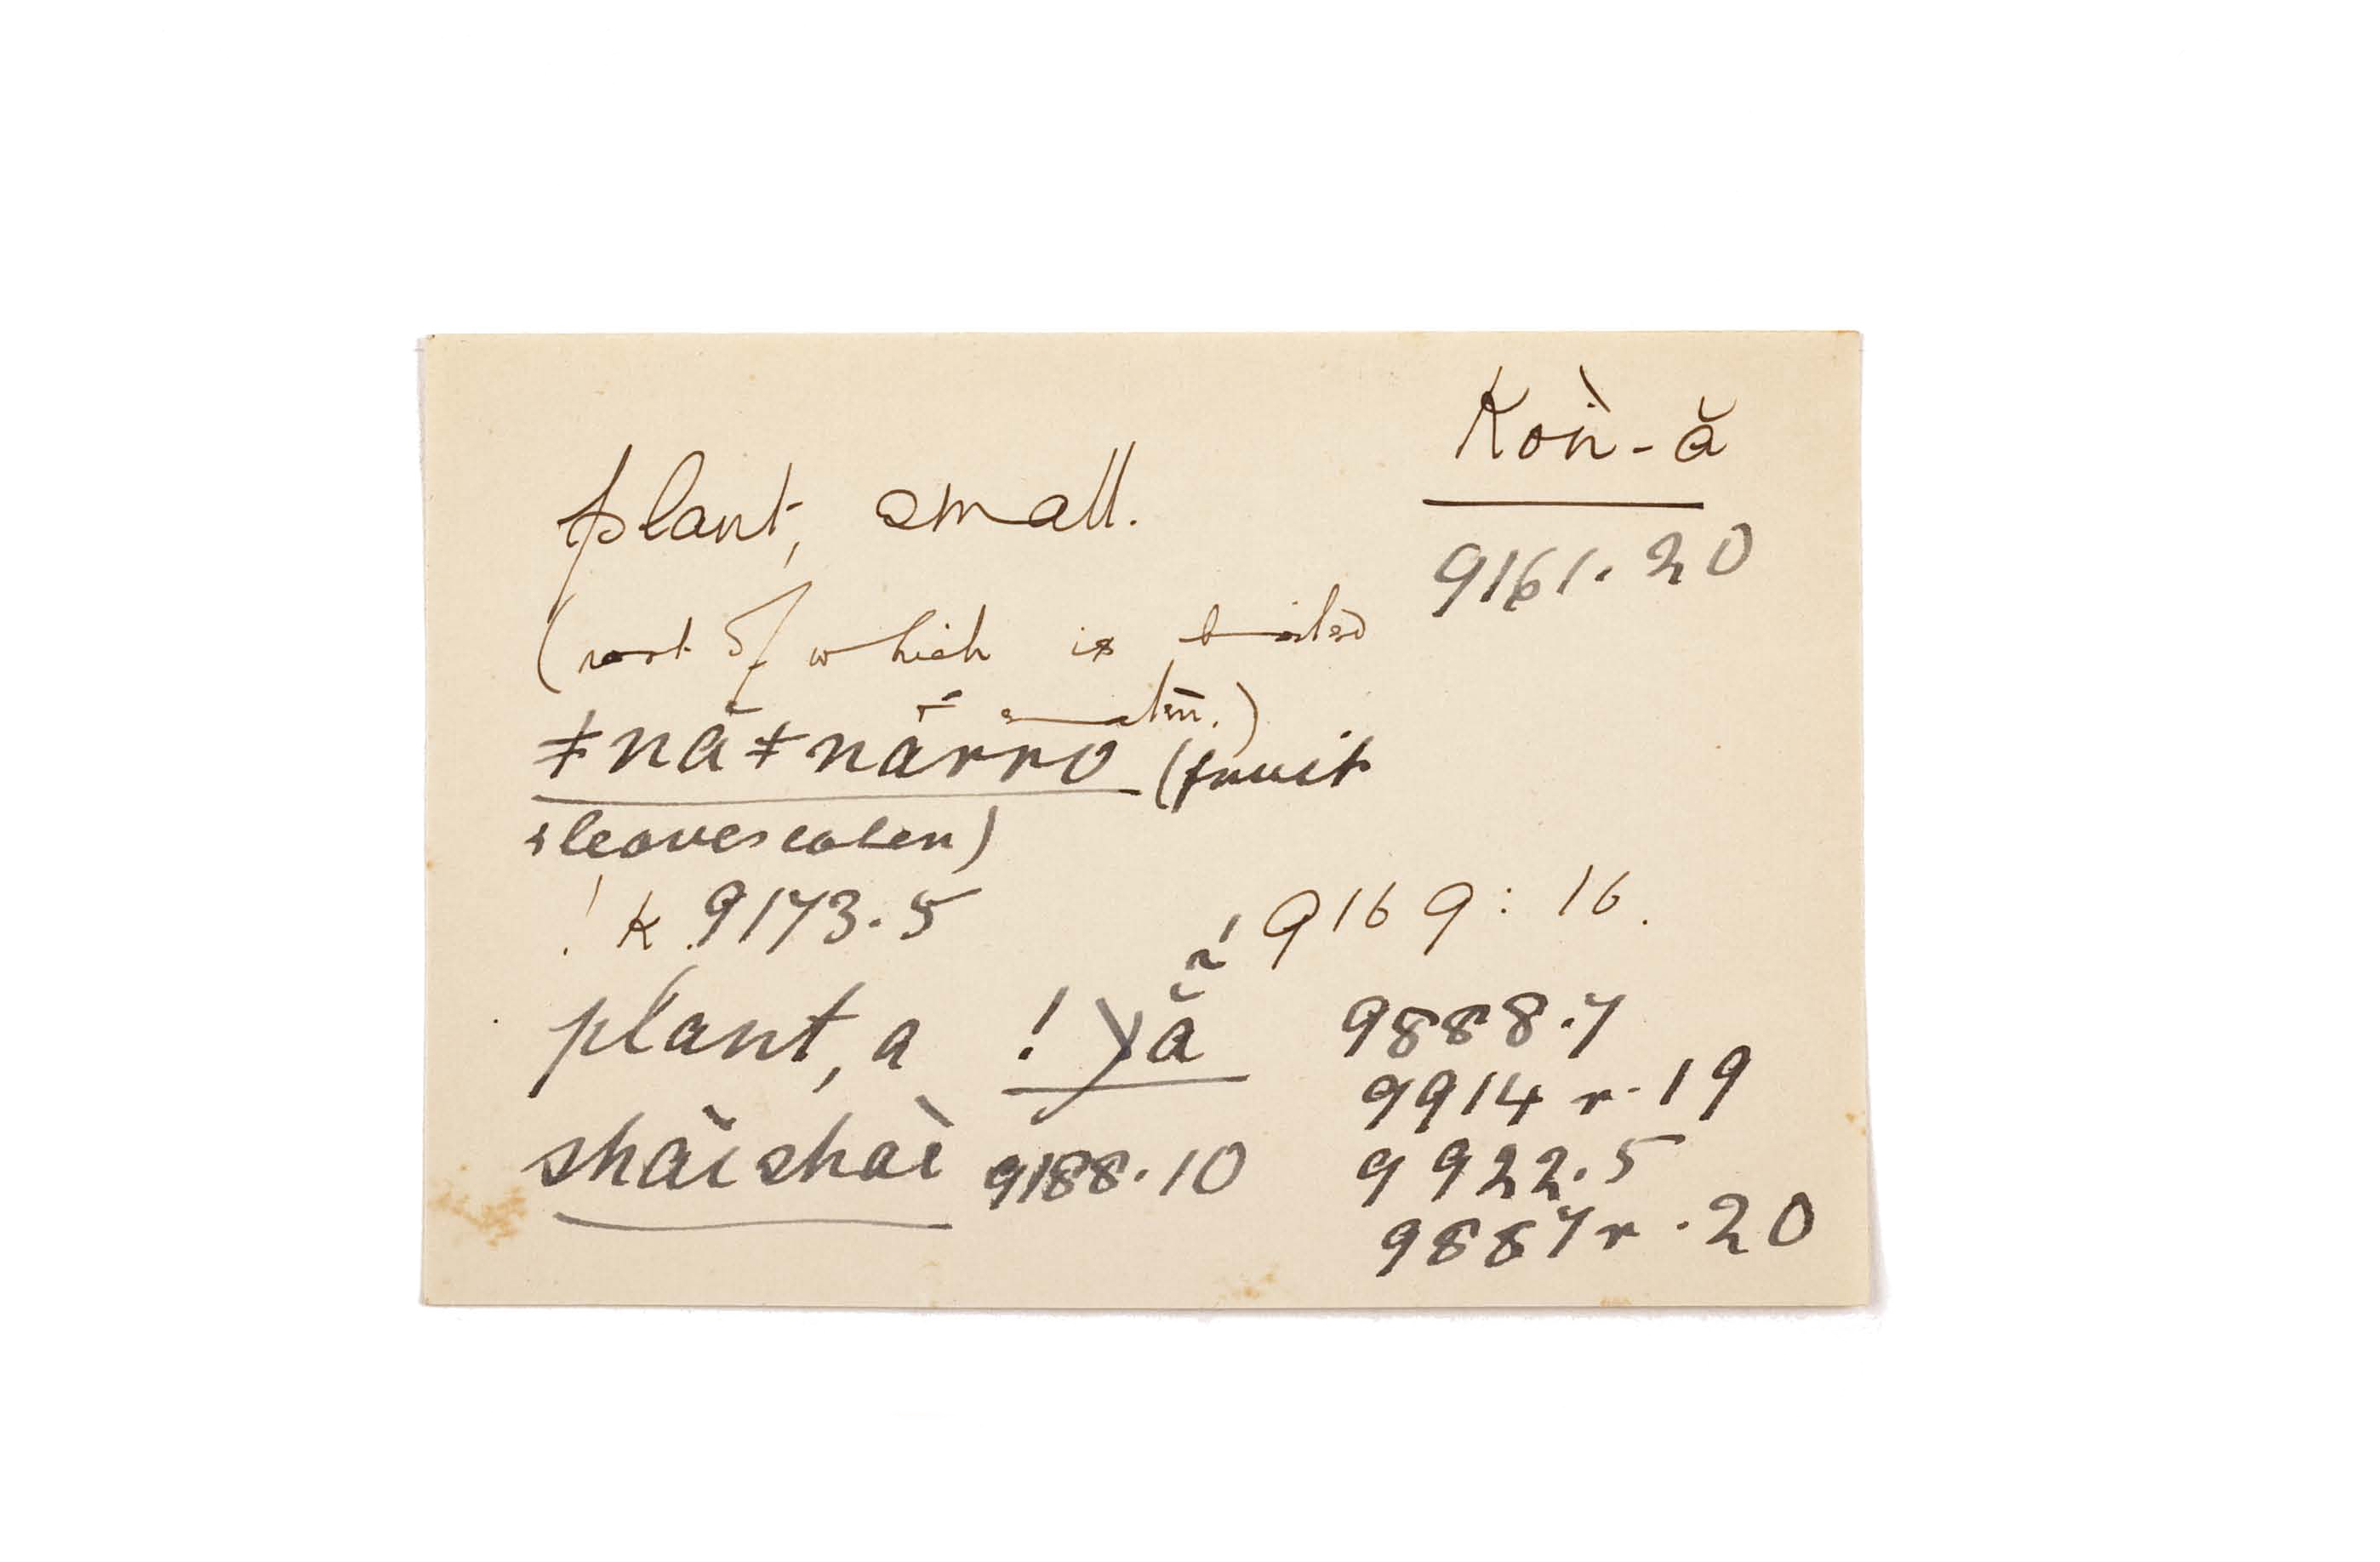 Koǹ-ă
plant, small.
9161.20
(root of which is boiled
& eaten.)
ǂnā̆ǂnā̆rro (fruit
& leaves eaten)
! K. 9173.5
9169: 16.
plant, a ! χă 9888.7
9914 r. 19
shàishaì 9188.10 9922.5
9887 r. 20